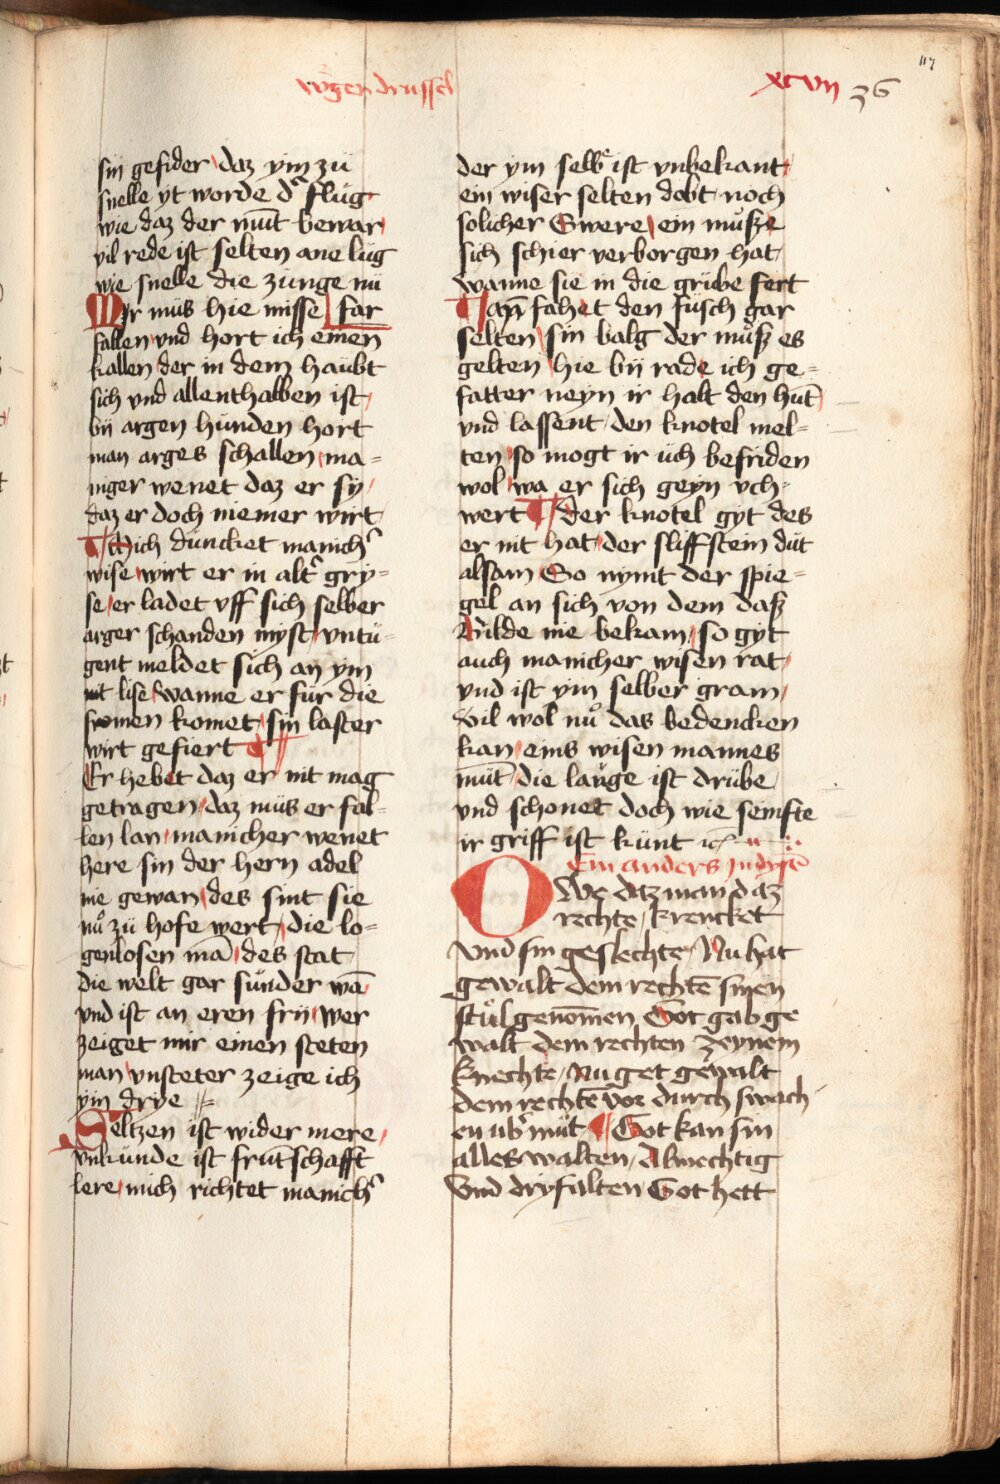 xcvii 36
117
sin gefider daz ym zü
snelle yt worde d' flug
wie daz der müt bewar
vil rede ist selten ane lüg
wie snelle die zünge nü
Mir müs hie misse far
fallen vnd hort ich einen
kallen der in dem haübt
sich vnd allenthalben ist
bÿ argen hünden hort
man arges schallen ma=
niger wenet daz er sÿ
daz er doch niemer wirt
Mich düncket manich'
wise wirt er in alt' gry=
se er ladet vff sich selber
arger schanden myst vntü=
gent meldet sich an ym
mit lise wanne er für die
fromen komet sin laster
wirt gefiert
Er hebet daz er nit mag
getragen daz müs er fal=
len lan manicher wenet
here sin der hern adel
nie gewan des sint sie
nů zü hofe wert die lo=
genlosen mā des stat
die welt gar sünder wā
vnd ist an eren frÿ wer
zeiget mir einen steten
man vnsteter zeige ich
ym drye
Seltzen ist wider mere
vnkünde ist früt schafft
lere mich richtet manich'
der ym selbe ist vnbekant
ein wiser selten dobt noch
solicher Swere ein můsze
sich schier verborgen hat
wanne sie in die grübe fert
Man fahet den füsch gar
selten sin balg der můsz es
gelten hie bÿ rade ich ge=
fatter neyn ir halt den hüt
vnd lassent den knotel mel=
ten so mogt ir üch befriden
wol wa er sich geyn vch
wert Der knotel gyt des
er nit hat der sliffstein düt
alsam So nymt der spie=
gel an sich von dem dasz
Bilde nie bekam so gyt
auch manicher wisen rat
vnd ist ym selber gram
Vil wol nů das bedencken
kan eins wisen mannes
müt die lauge ist drübe
vnd schonet doch wie semfte
ir griff ist künt
Ein anders
O We daz man daz
rechte krencket
Vnd sin geslechte Nu hat
gewalt dem rechtē sinen
stůl genomen Got gab ge
walt dem rechten zeynem
knechte Nu get gewalt
dem rechtē vor durch swach
en vb' müt Got kan sin
alles walten Almechtig
Vnd dryfalten Got hett